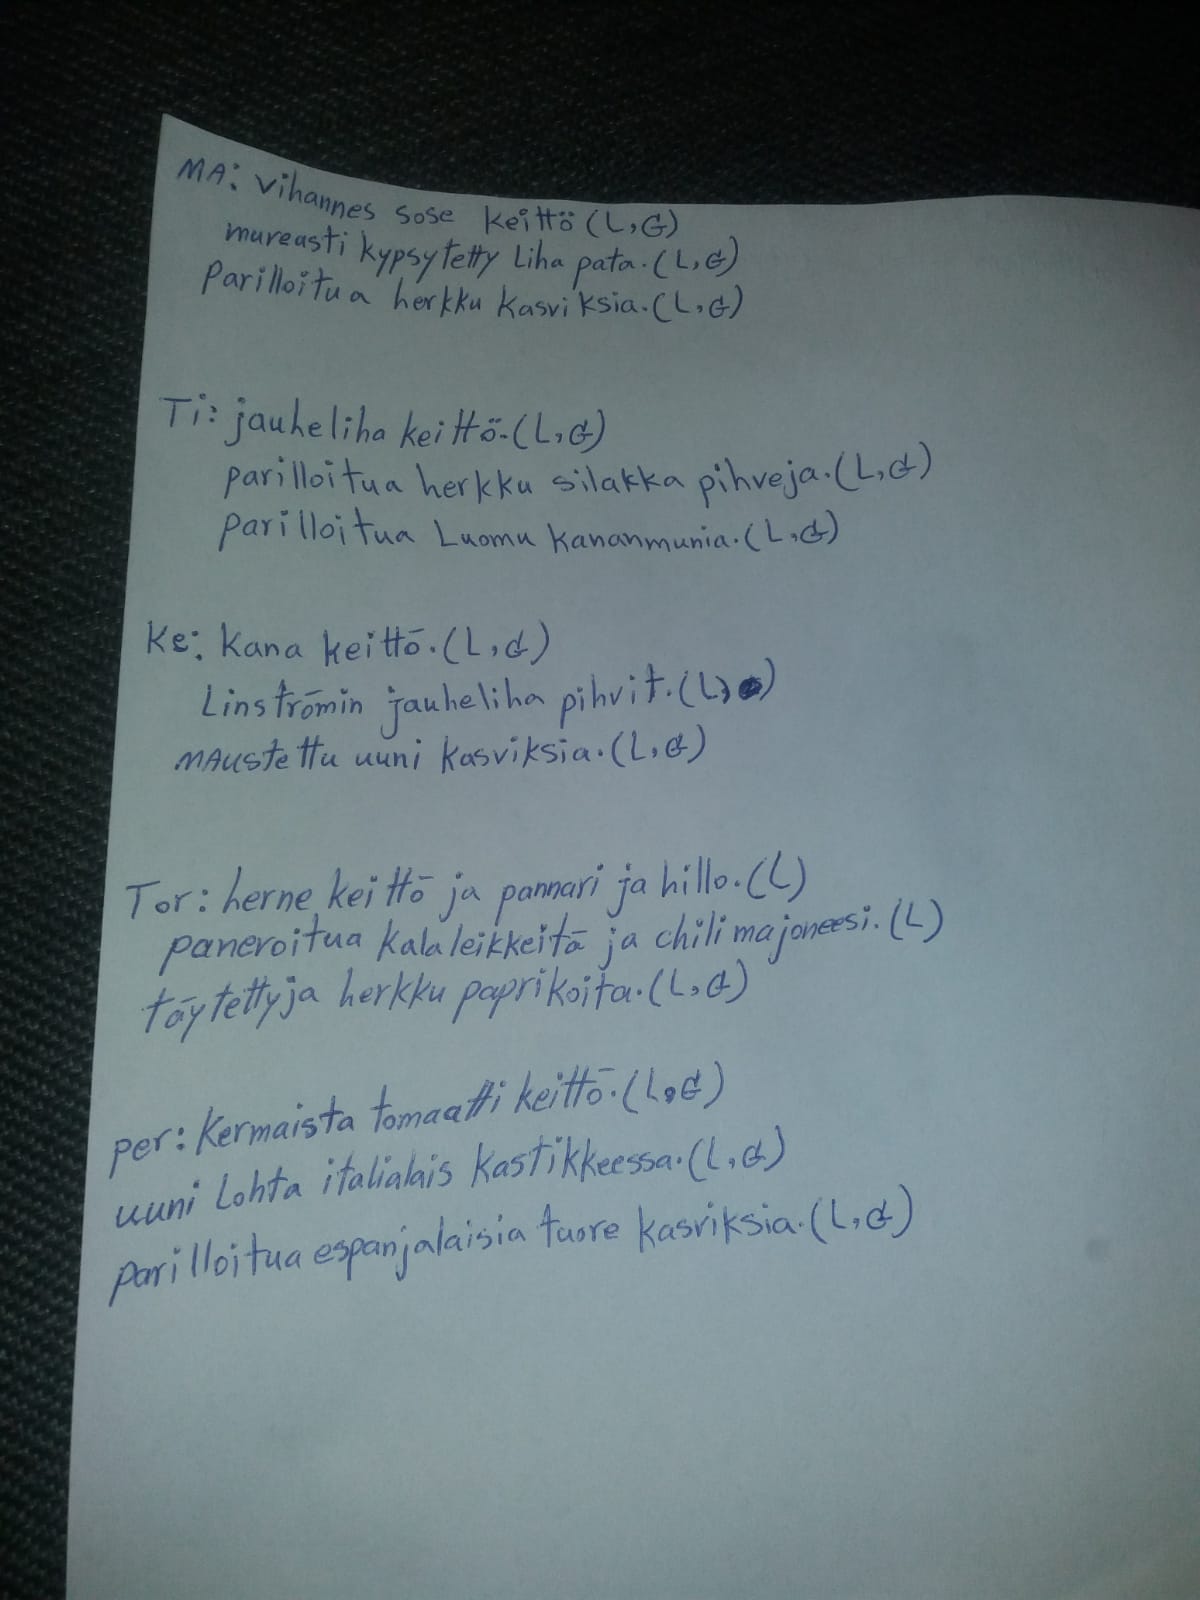 MA: vihannes sose keittö (L,G)
mureasti kypsytetty Liha pata. (L,G)
Parilloitua herkku kasviksia. (L,G)
Ti: jauheliha keittö. (L,G)
parilloitua herkku silakka pihvejä. (L,G)
parilloitua Luomu kananmunia. (L,G)
Ke: kana keittö. (L,G)
Linströmin jauheliha pihvit. (L,)
MAustettu uuni kasviksia. (L,G)
Tor: herne keittö ja pannari ja hillo. (L)
paneroitua kalaleikkeitä ja chili majoneesi. (L)
täytettyja herkku paprikoita. (L,G)
per: kermaista tomaatti keittö. (L,G)
uuni Lohta italialais kastikkeessa. (L,G)
parilloitua espanjalaisia tuore kasviksia. (L,G)